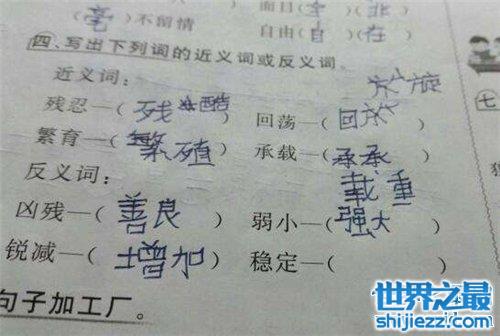 (毫)不留情 面目(全)(非)
自由(自)(在)
四、写出下列词的近义词或反义词。
近义词：
残忍—(残酷) 回荡—(回放)
繁育—(繁殖) 承载—(承承)
反义词： 载重
凶残—(善良) 弱小—(强大)
锐减—(增加) 稳定—( )
句子加工厂。
七
世界之最
SHIJIEZZI.COM